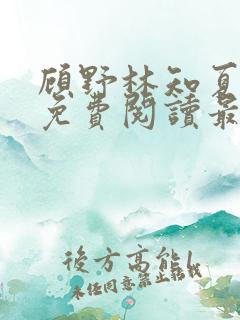 顾野林知夏
免費閱讀最
後方高能!
未经同意禁止转载